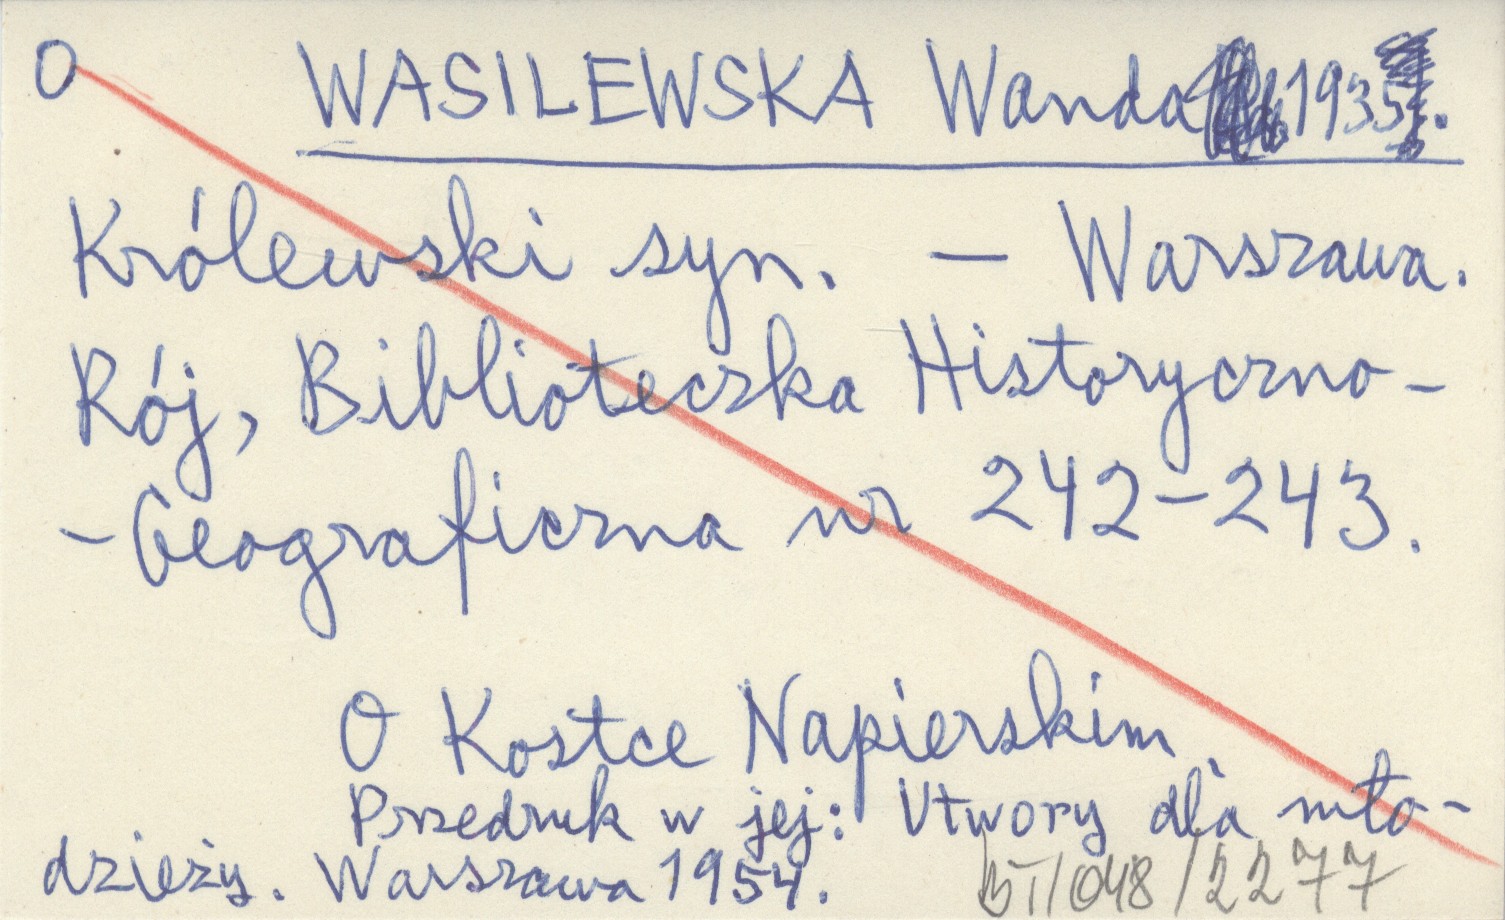 O WASILEWSKA Wanda 1935.
Królewski syn. — Warszawa.
Rój, Biblioteczka Historyczno-
-Geograficzna nr 242-243.
O Kostce Napierskim.
Przedruk w jej: Utwory dla mło-
dzieży. Warszawa 1954.
/048/2277